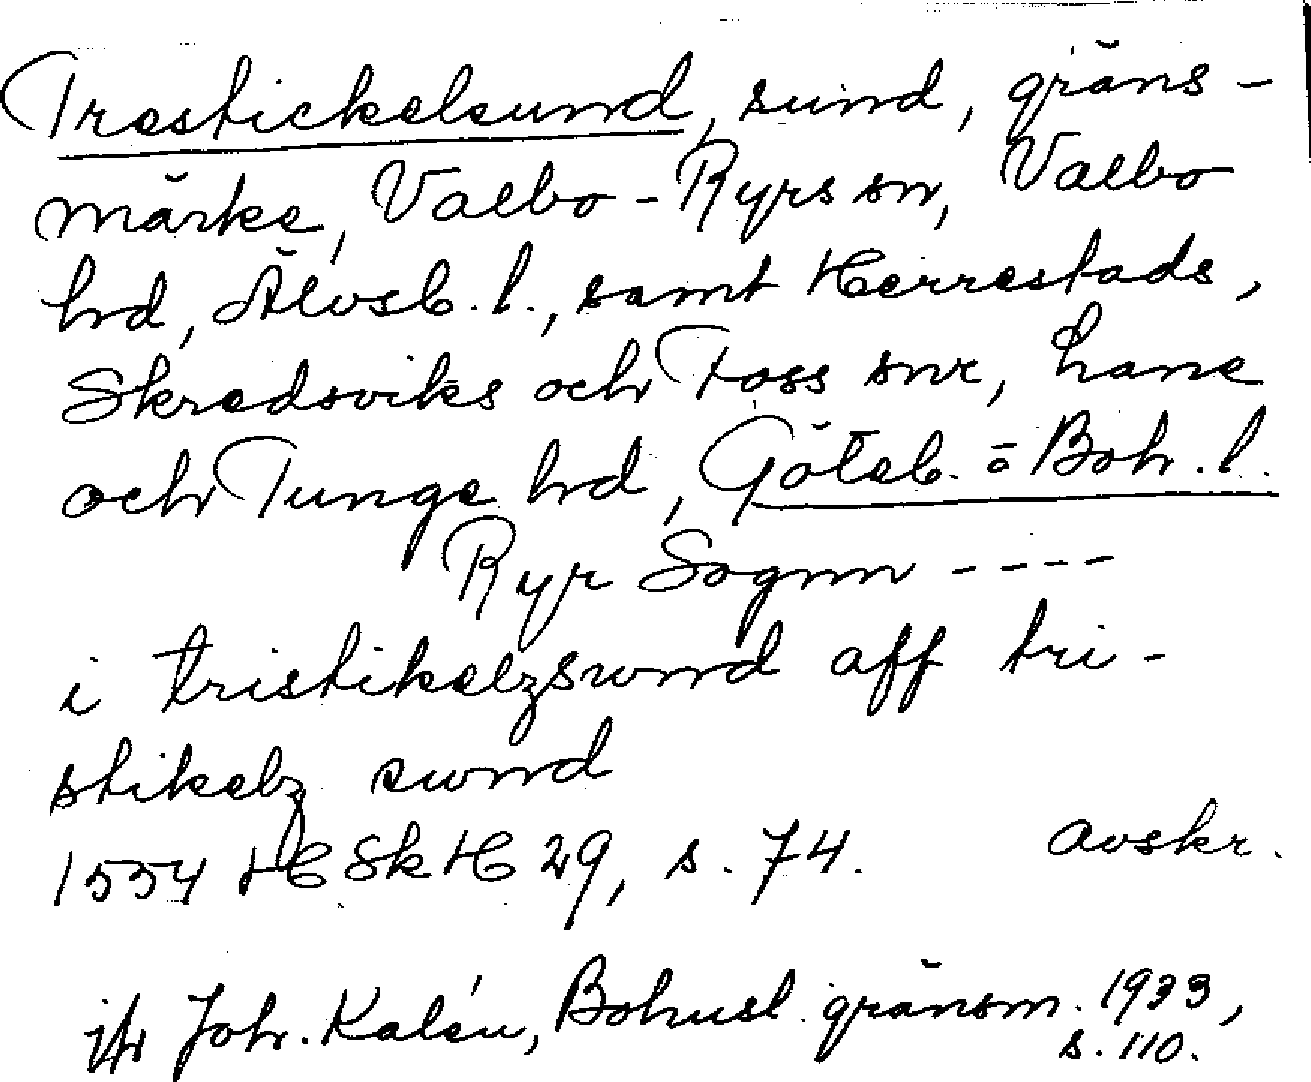 Trestickelsund, sund, gräns-
märke, Valbo-Ryrs sn, Valbo
hd, Älvsb. l., samt Herrestads,
Skredsviks och Foss snr, Lane
och Tunge hd, Göteb. o Boh. l.
Ryr Sognn ----
i tristikelzswnd aff tri-
stikelz swnd
1554 HSkH 29, s. 74. avskr.
jfr Joh. Kalén, Bohusl. gränsm. 1933,
s. 110.